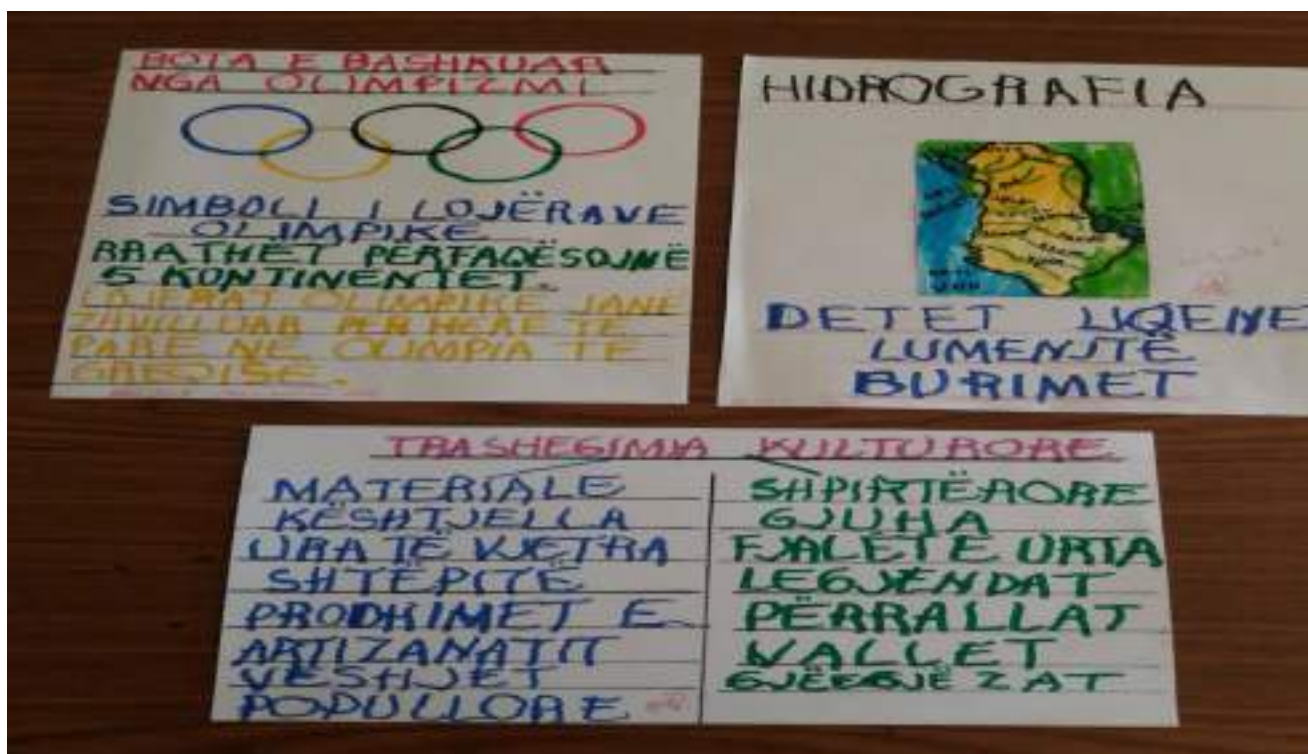 BOTA E BASHKUAR
NGA OLIMPIZMI
SIMBOLI I LOJËRAVE
OLIMPIKE
RRATHËT PERFAQËSOJNË
5 KONTINENTET.
LOJERAT OLIMPIKE JANË
ZHVILLUAR PER HERË TE
PARË NE OLIMPIA TE
GREQISE.
HIDROGRAFIA
DETET LIQENE
LUMENJTË
BURIMET
TRASHEGIMIA KULTURORE
MATERIALE
KËSHTJELLA
URA TË VJETRA
SHTËPITË
PRODHIMET E
ARTIZANATIT
VESHJET
POPULLORE
SHPIRTËRORE
GJUHA
FJALET E URTA
LEGJENDAT
PËRRALLAT
VALLET
GJËEGJËZAT